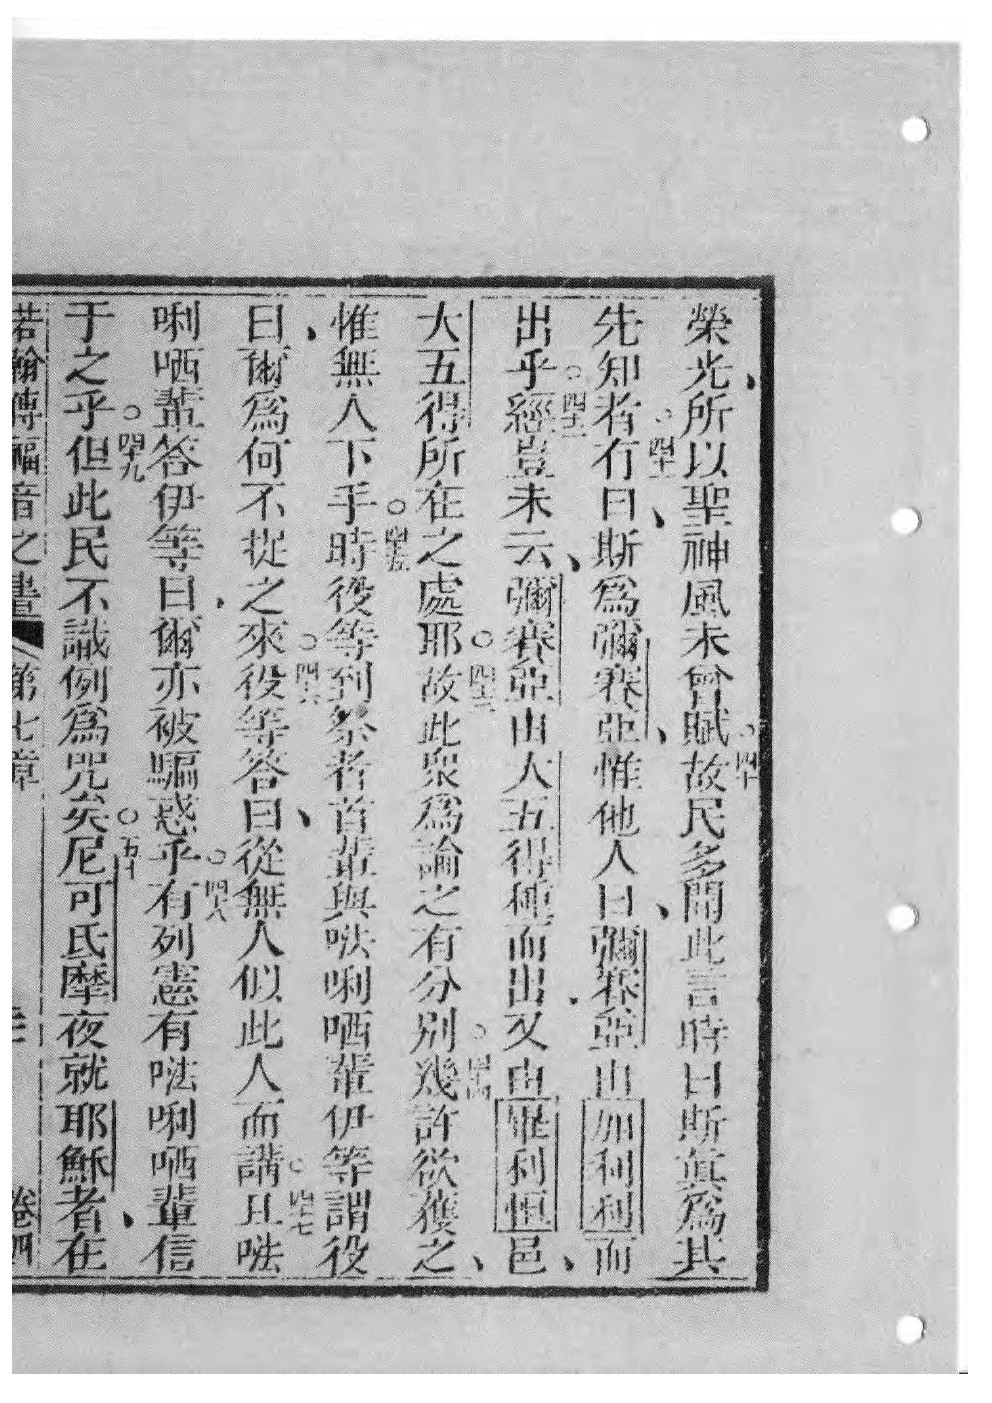 榮光、所以聖神風未曾賦○四十故民多聞此言時曰斯真為其
先知者○四十一冇曰、斯為彌賽亞、惟他人曰、彌賽亞由加利利而
出乎○四十二經豈未云、彌賽亞由大五得種而出又由畢利恒邑、
大五得所在之處耶○四十三故此眾為論之有分別○四十四幾許欲獲之、
惟無人下手○四十五時役等到祭者首輩與𠵽唎哂輩伊等謂役
曰、爾為何不捉之來○四十六役等答曰、從無人似此人而講○四十七且𠵽
唎哂輩答伊等曰、爾亦被騙惑乎○四十八有列憲有𠵽唎哂輩信
于之乎○四十九但此民不識例為咒矣○五十尼可氏摩夜就耶穌者、在
若翰傳福音之書 第七章 卷四